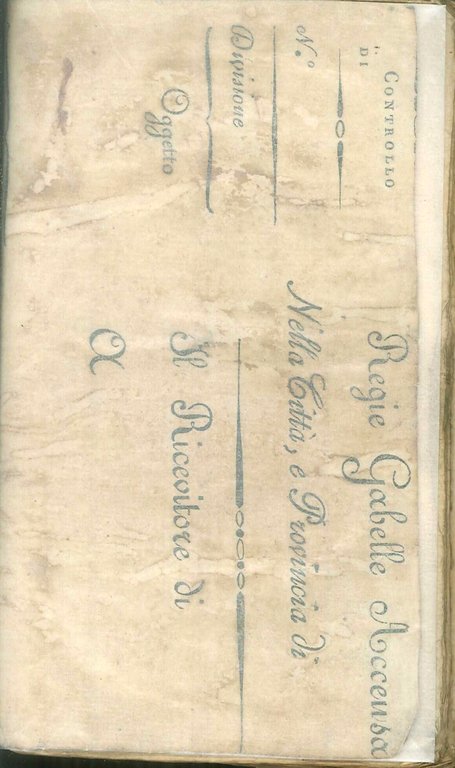 CONTROLLO
DI
N.º
Divisione
Oggetto
Regie Gabelle Accensa
Nella Città, e Provincia di
Il Ricevitore di
A